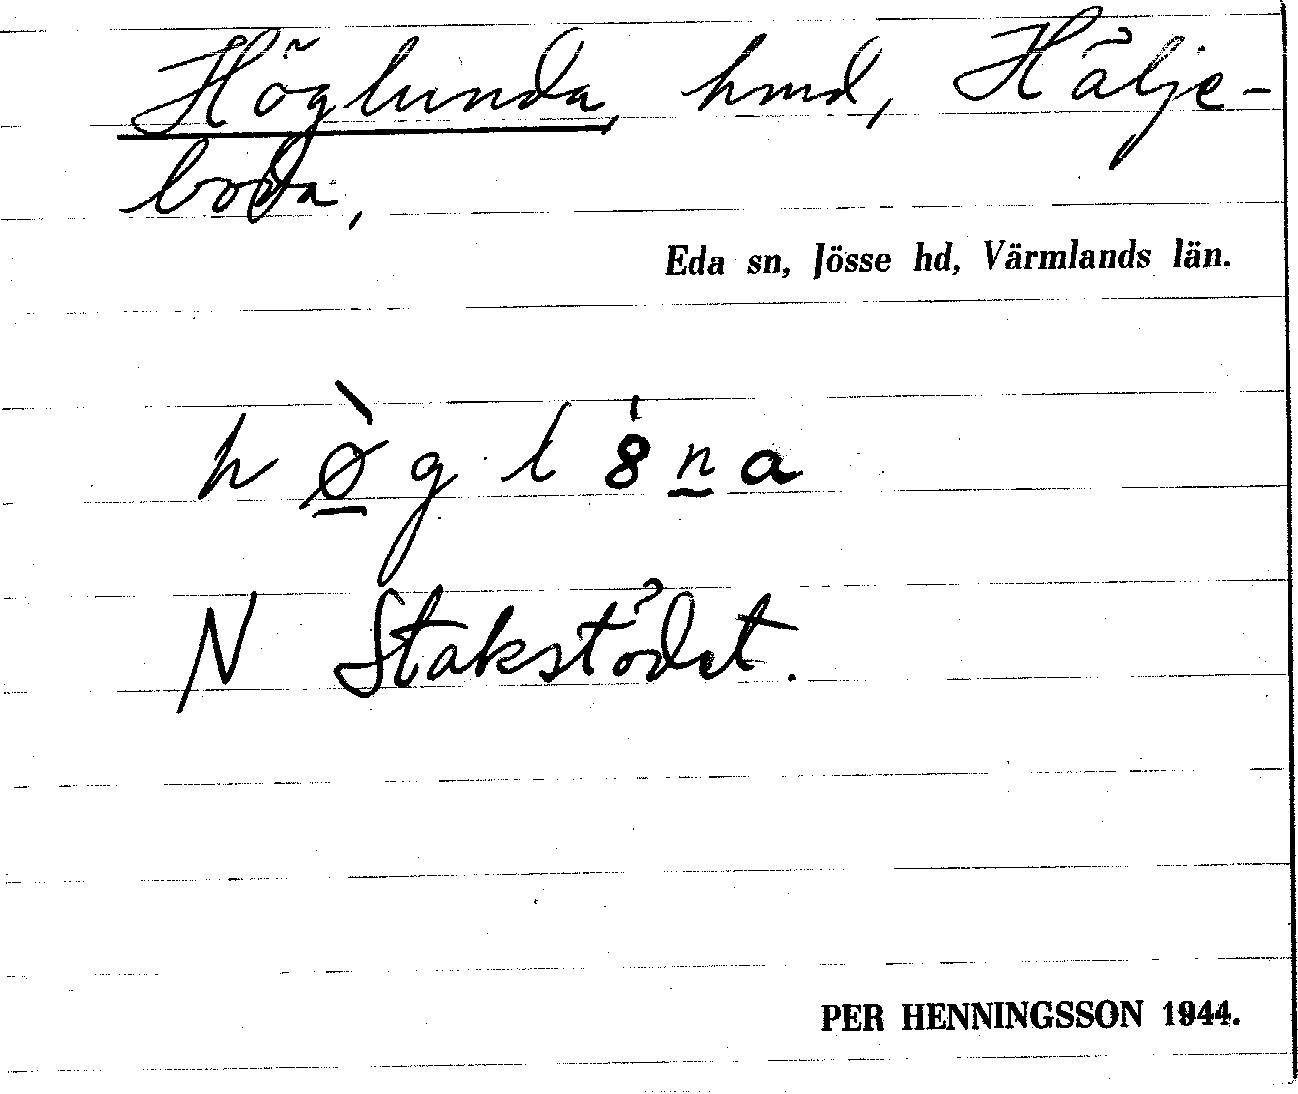 Höglunda, hmd, Hälje-
boda,
Eda sn, Jösse hd, Värmlands län.
hø̀gl8́na
N Stakstödet.
PER HENNINGSSON 1944.